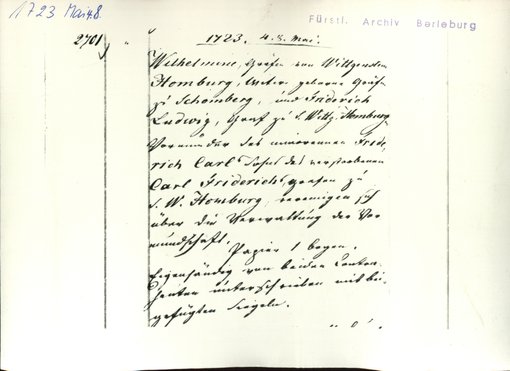 1723 Mai 4/8.
Fürstl. Archiv Berleburg
2701
1723. 4.8. Mai.
Wilhelmine, Gräfin von Wittgenstein
Homburg, Witwe, geborne Gräfin
zu Schomberg, und Friderich
Ludwig, Graf zu S. Wittg. Homburg
Vormünder des minorennen Fride-
rich Carl Sohns des verstorbenen
Carl Friderichs, Grafen zu
S. W. Homburg, vereinigen sich
über die Verwaltung der Vor-
mundschaft.
Papier 1 bogen.
Eigenhändig von beiden
unterschrieben mit bei-
gefügten Siegeln.